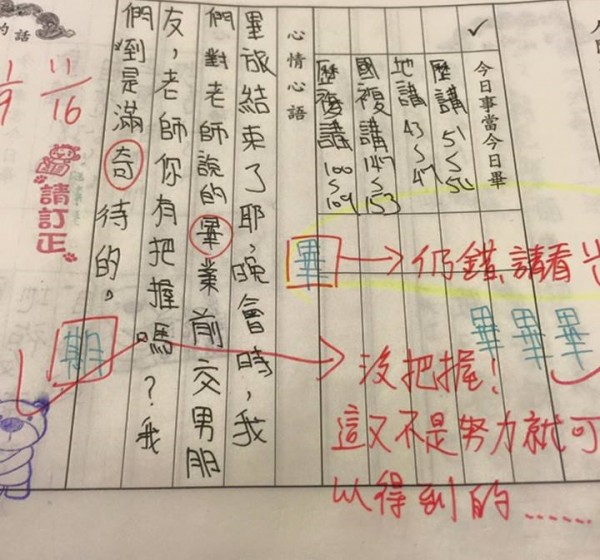 今日事當今日畢
✓
歷講 51~54
地講 43~47
國複講 147~153
歷複講 100~109
心情心語
畢旅結束了耶,晚會時,我
們對老師說的畢業前交男朋
友,老師你有把握嗎?我
們到是滿奇待的。
畢
仍錯,請看
畢畢畢
沒把握!
這又不是努力就可
以得到的......
11/16
請訂正
的話